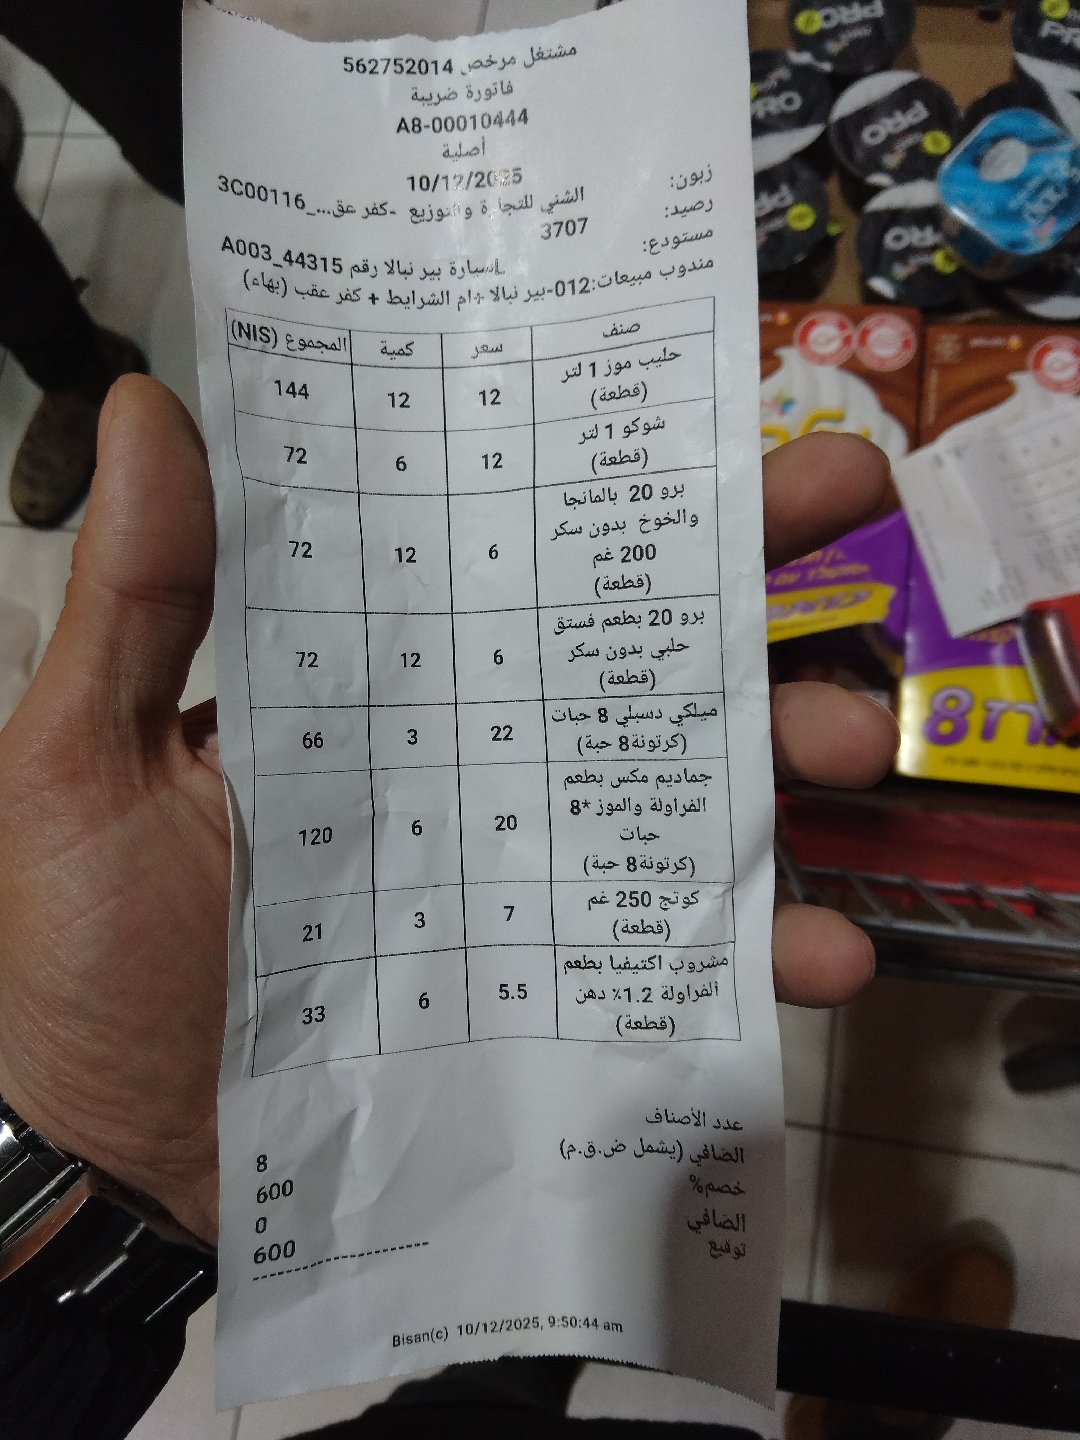 مشتغل مرخص 562752014
فاتورة ضريبة
A8-00010444
أصلية
10/12/2025
زبون: الشني للتجارة والتوزيع -كفر عق..._3C00116
رصيد: 3707
مستودع: سيارة بير نبالا رقم A003_44315
مندوب مبيعات:012-بير نبالا +ام الشرايط + كفر عقب (بهاء)
صنف سعر كمية المجموع (NIS)
حليب موز 1 لتر
(قطعة) 12 12 144
شوكو 1 لتر
(قطعة) 12 6 72
برو 20 بالمانجا
والخوخ بدون سكر
200 غم
(قطعة) 6 12 72
برو 20 بطعم فستق
حلبي بدون سكر
(قطعة) 6 12 72
ميلكي دسبلي 8 حبات
(كرتونة8 حبة) 22 3 66
جماديم مكس بطعم
الفراولة والموز *8
حبات
(كرتونة8 حبة) 20 6 120
كوتج 250 غم
(قطعة) 7 3 21
مشروب اكتيفيا بطعم
الفراولة 1.2٪ دهن
(قطعة) 5.5 6 33
عدد الأصناف 8
الصافي (يشمل ض.ق.م) 600
خصم% 0
الصافي 600
توقيع --------------------
Bisan(c) 10/12/2025, 9:50:44 am
PRO
PRO
PRO
PRO
8